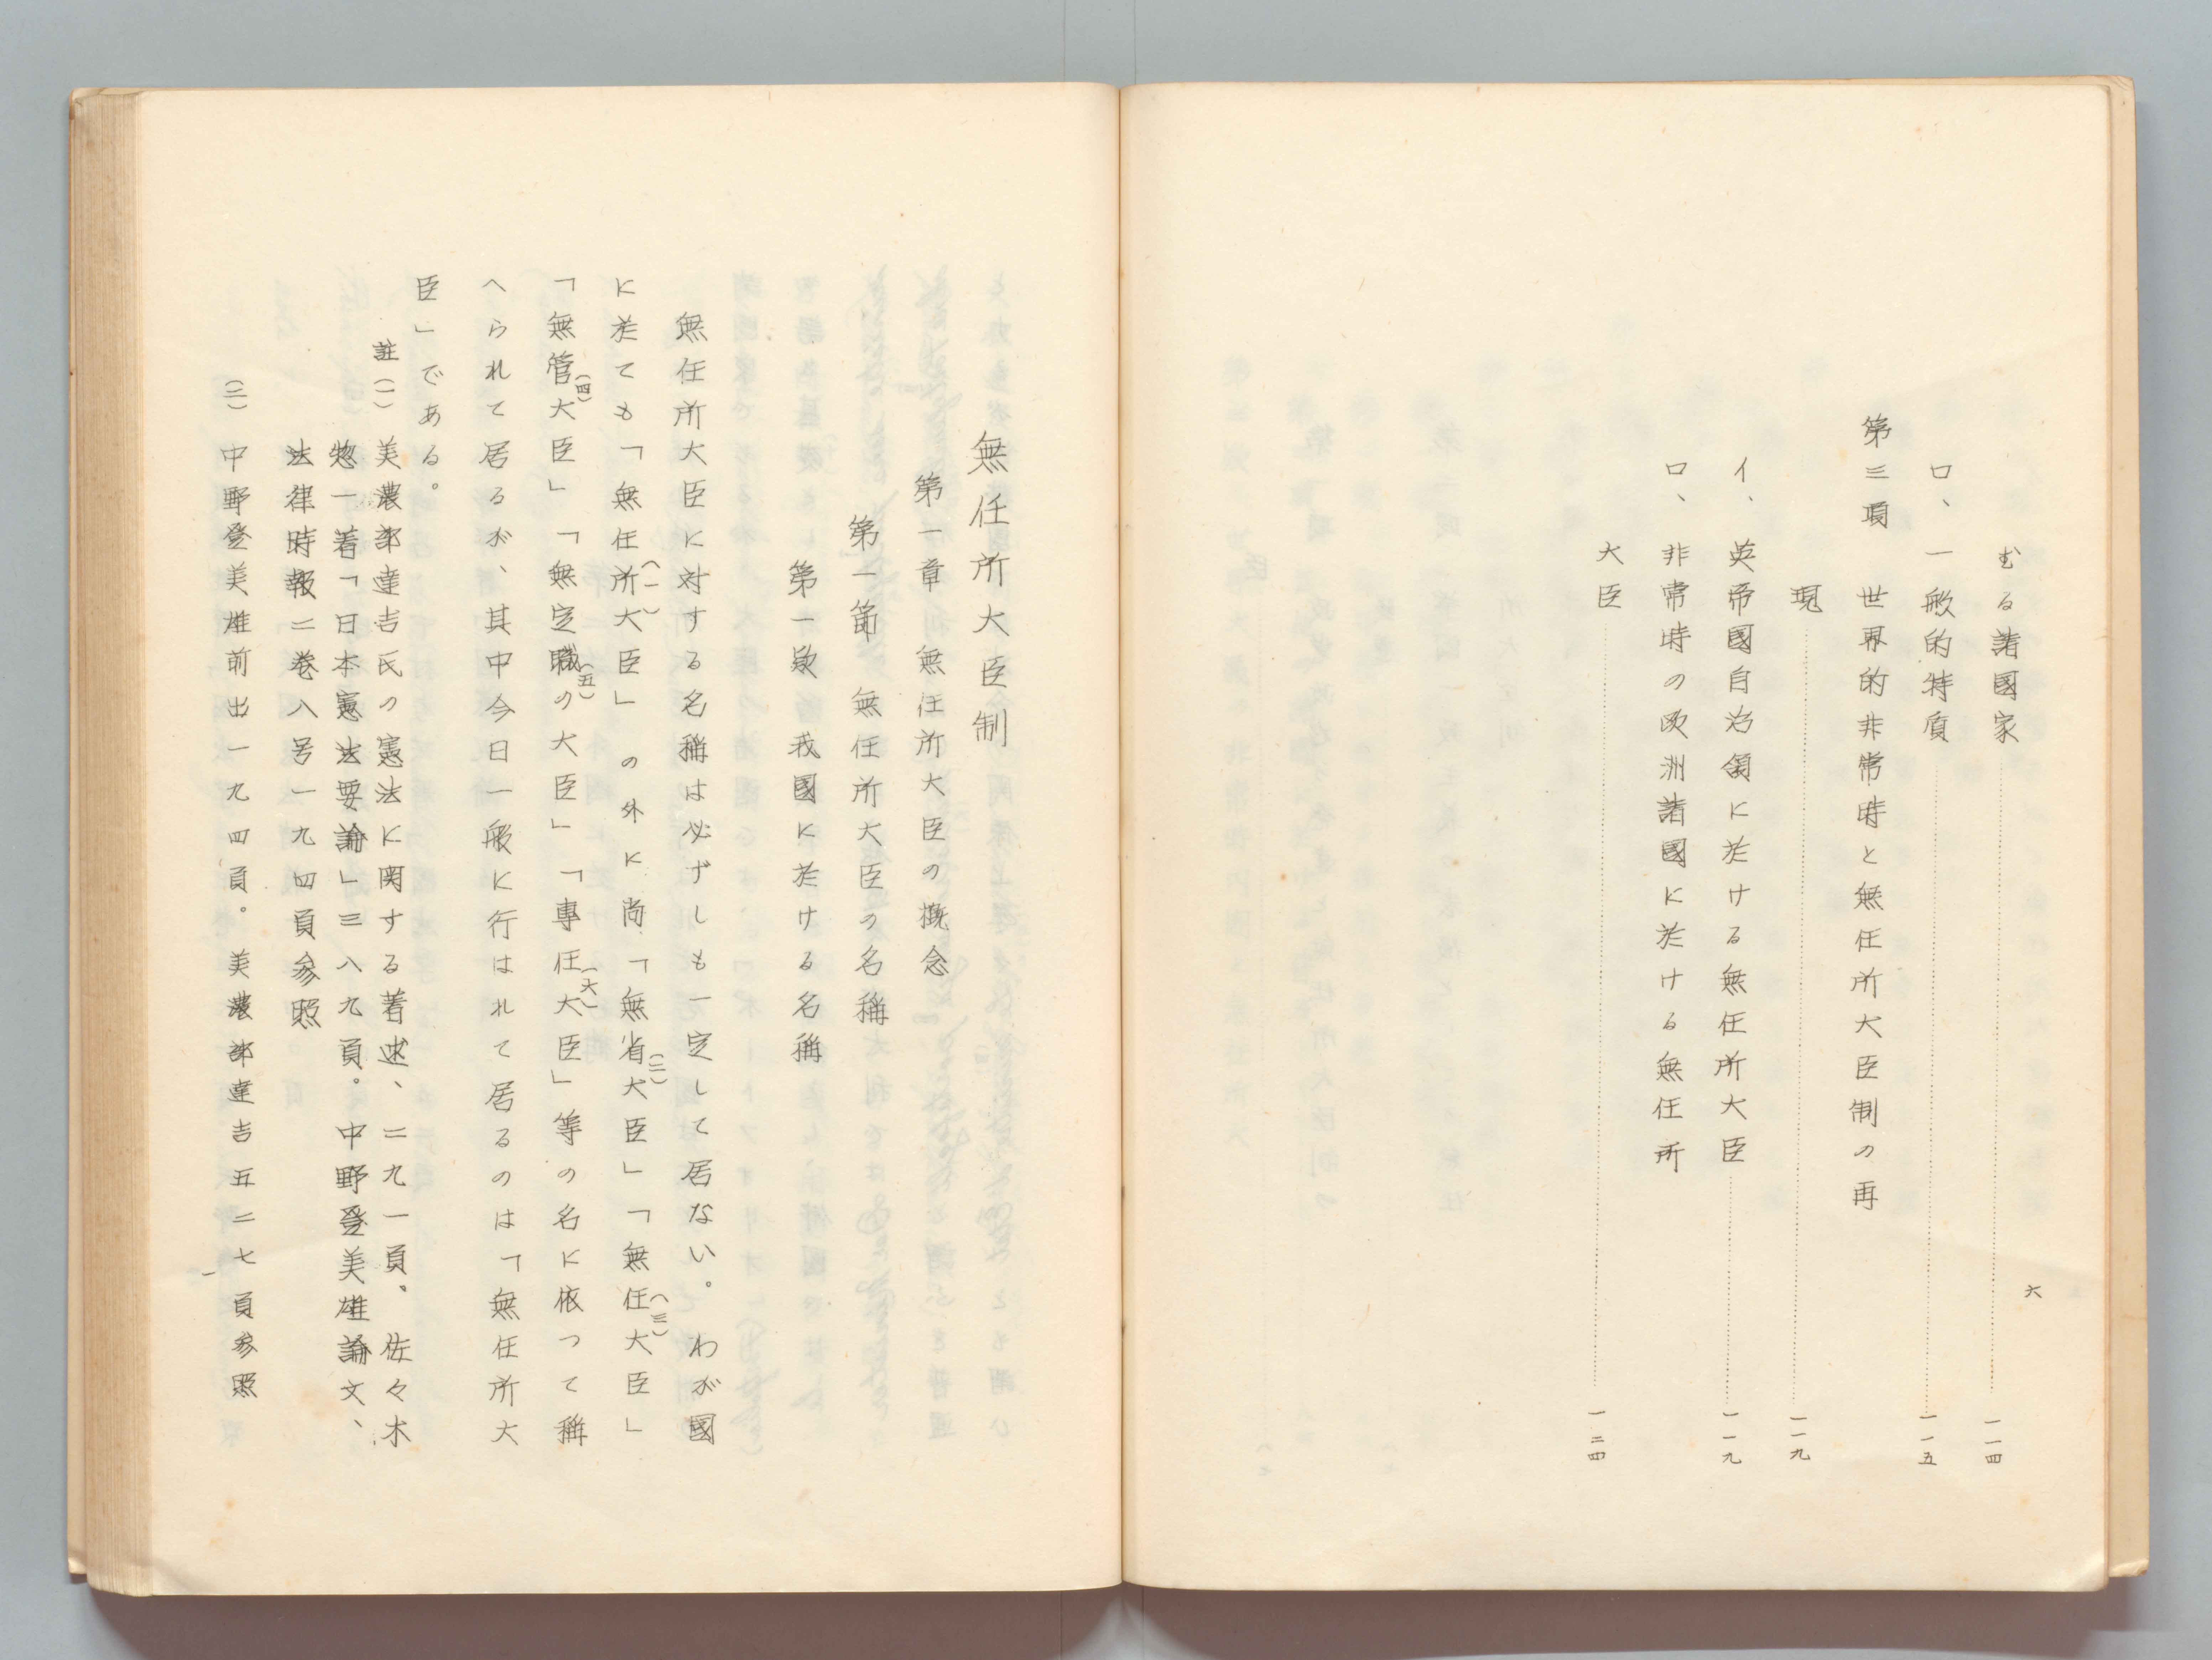 六
むる諸國家………一一四
ロ、一般的特質………一一五
第三項　世界的非常時と無任所大臣制の再
現………一一九
イ、英帝國自治領に於ける無任所大臣………一一九
ロ、非常時の欧洲諸國に於ける無任所
大臣………一二四
無任所大臣制
第一章　無任所大臣の概念
第一節　無任所大臣の名稱
第一款　我國に於ける名稱
無任所大臣に対する名稱は必ずしも一定して居ない。わが國
に於ても「無任所(一)大臣」の外に尚「無省(二)大臣」「無任(三)大臣」
「無管(四)大臣」「無定職(五)の大臣」「專任(六)大臣」等の名に依つて稱
へられて居るが、其中今日一般に行はれて居るのは「無任所大
臣」である。
註(一)　美濃部達吉氏の憲法に関する著述、二九一頁。佐々木
惣一著「日本憲法要論」三八九頁。中野登美雄論文、
法律時報二巻八号一九四頁参照
(二)　中野登美雄前出一九四頁。美濃部達吉五二七頁参照
一